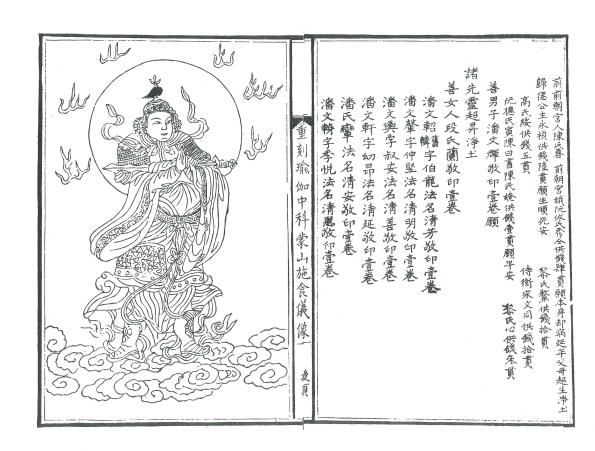 前前朝宮人陳氏春 前朝宮嬪阮修氏香仝供錢肆貫願本身却病延年父母超生淨土
歸僊公主永禎供錢陸貫願生順死安 黎氏繁供錢拾貫
高氏綾供錢五貫 侍衛宋文同供錢拾貫
阮德氏賓陳曰書陳氏㛪供錢壹貫願平安 黎氏心供錢柒貫
善男子潘文燿敬印壹卷願
諸先靈超昇淨土
善女人段氏蘭敬印壹卷
潘文軺舊輈字伯龍法名清芳敬印壹卷
潘文肇字仲堅法名清明敬印壹卷
潘文輿字叔安法名清善敬印壹卷
潘文軒字幼昂法名清延敬印壹卷
潘氏鸞法名清安敬印壹卷
潘文輈字季悅法名清愿敬印壹卷
重刻瑜伽中科蒙山施食儀 像一 後頁